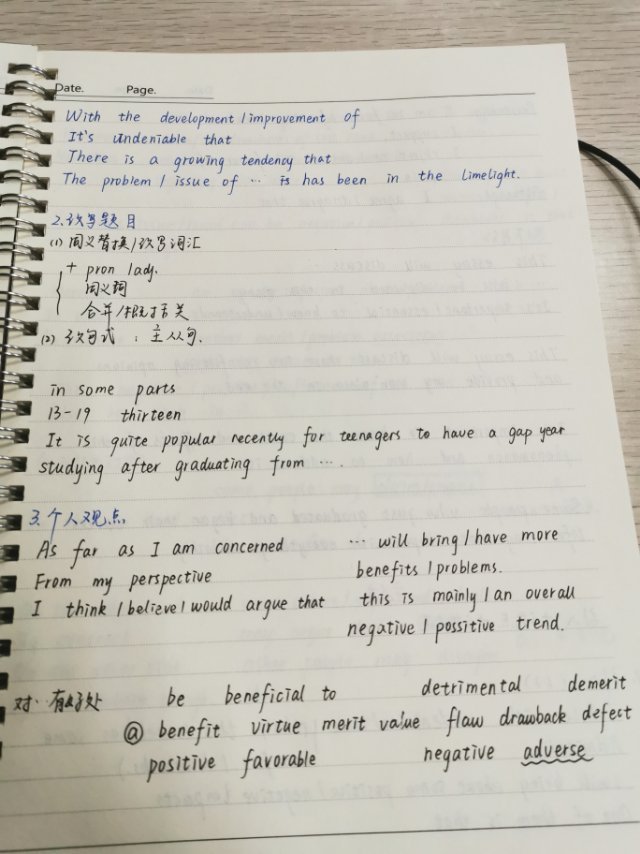 Date. Page.
With the development / improvement of
It's undeniable that
There is a growing tendency that
The problem / issue of … is has been in the limelight.
2.改写题目
(1) 同义替换/改写词汇
+ pron / adj.
同义词
合并/概括关
(2) 改句式：主从句.
in some parts
13-19 thirteen
It is quite popular recently for teenagers to have a gap year
studying after graduating from ….
3.个人观点
As far as I am concerned … will bring / have more
From my perspective benefits / problems.
I think / believe / would argue that this is mainly / an overall
negative / possitive trend.
对…有好处 be beneficial to detrimental demerit
@ benefit virtue merit value flaw drawback defect
positive favorable negative adverse